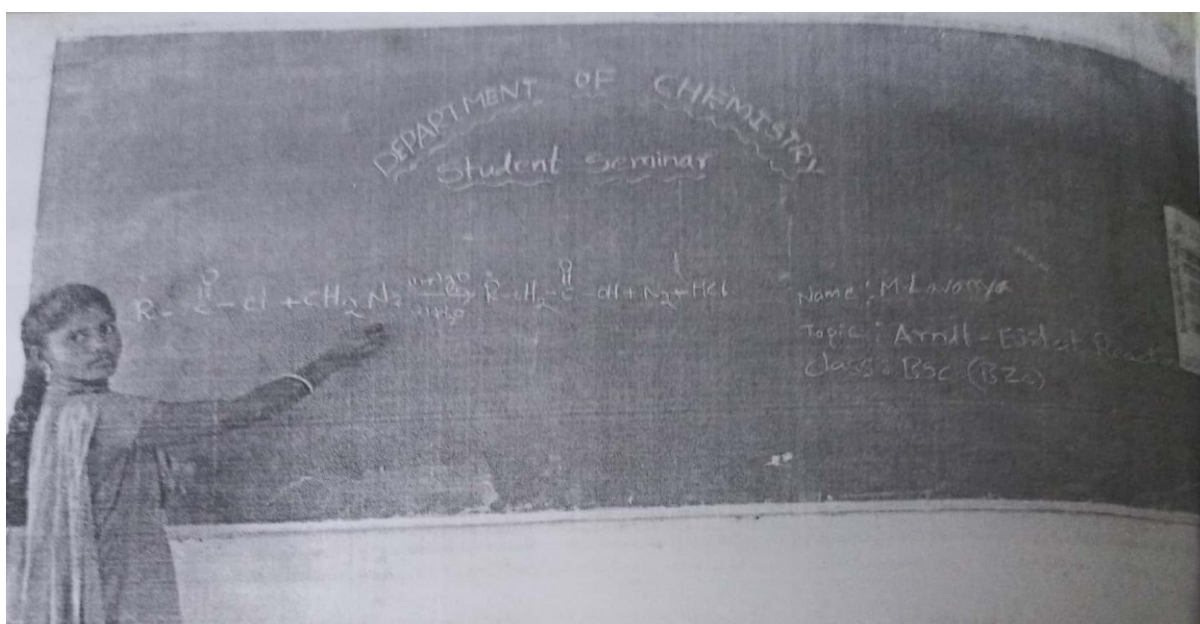 DEPARTMENT OF CHEMISTRY
Student Seminar
R - C - Cl + CH2N2 → R-CH2-C-OH + N2 + HCl
Name : M. Lavanya
Topic : Arndt - Eistet Reaction
class : BSC (BZC)